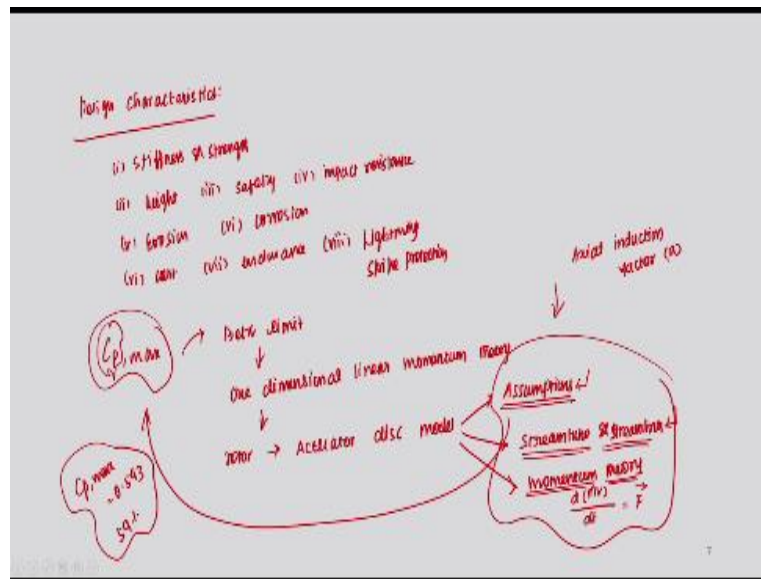 Design characteristics:
(i) stiffness & strength
(ii) height (iii) safety (iv) impact resistance
(v) Erosion (vi) corrosion
(vi) cost (vii) endurance (viii) Lightning
strike protection
Axial induction
factor (a)
Cp, max → Betz limit
One dimensional linear momentum theory
rotor → Actuator disc model
Assumptions
Streamtube & streamline
Momentum theory
d(mv)/dt = F
Cp, max
= 0.593
59%
7